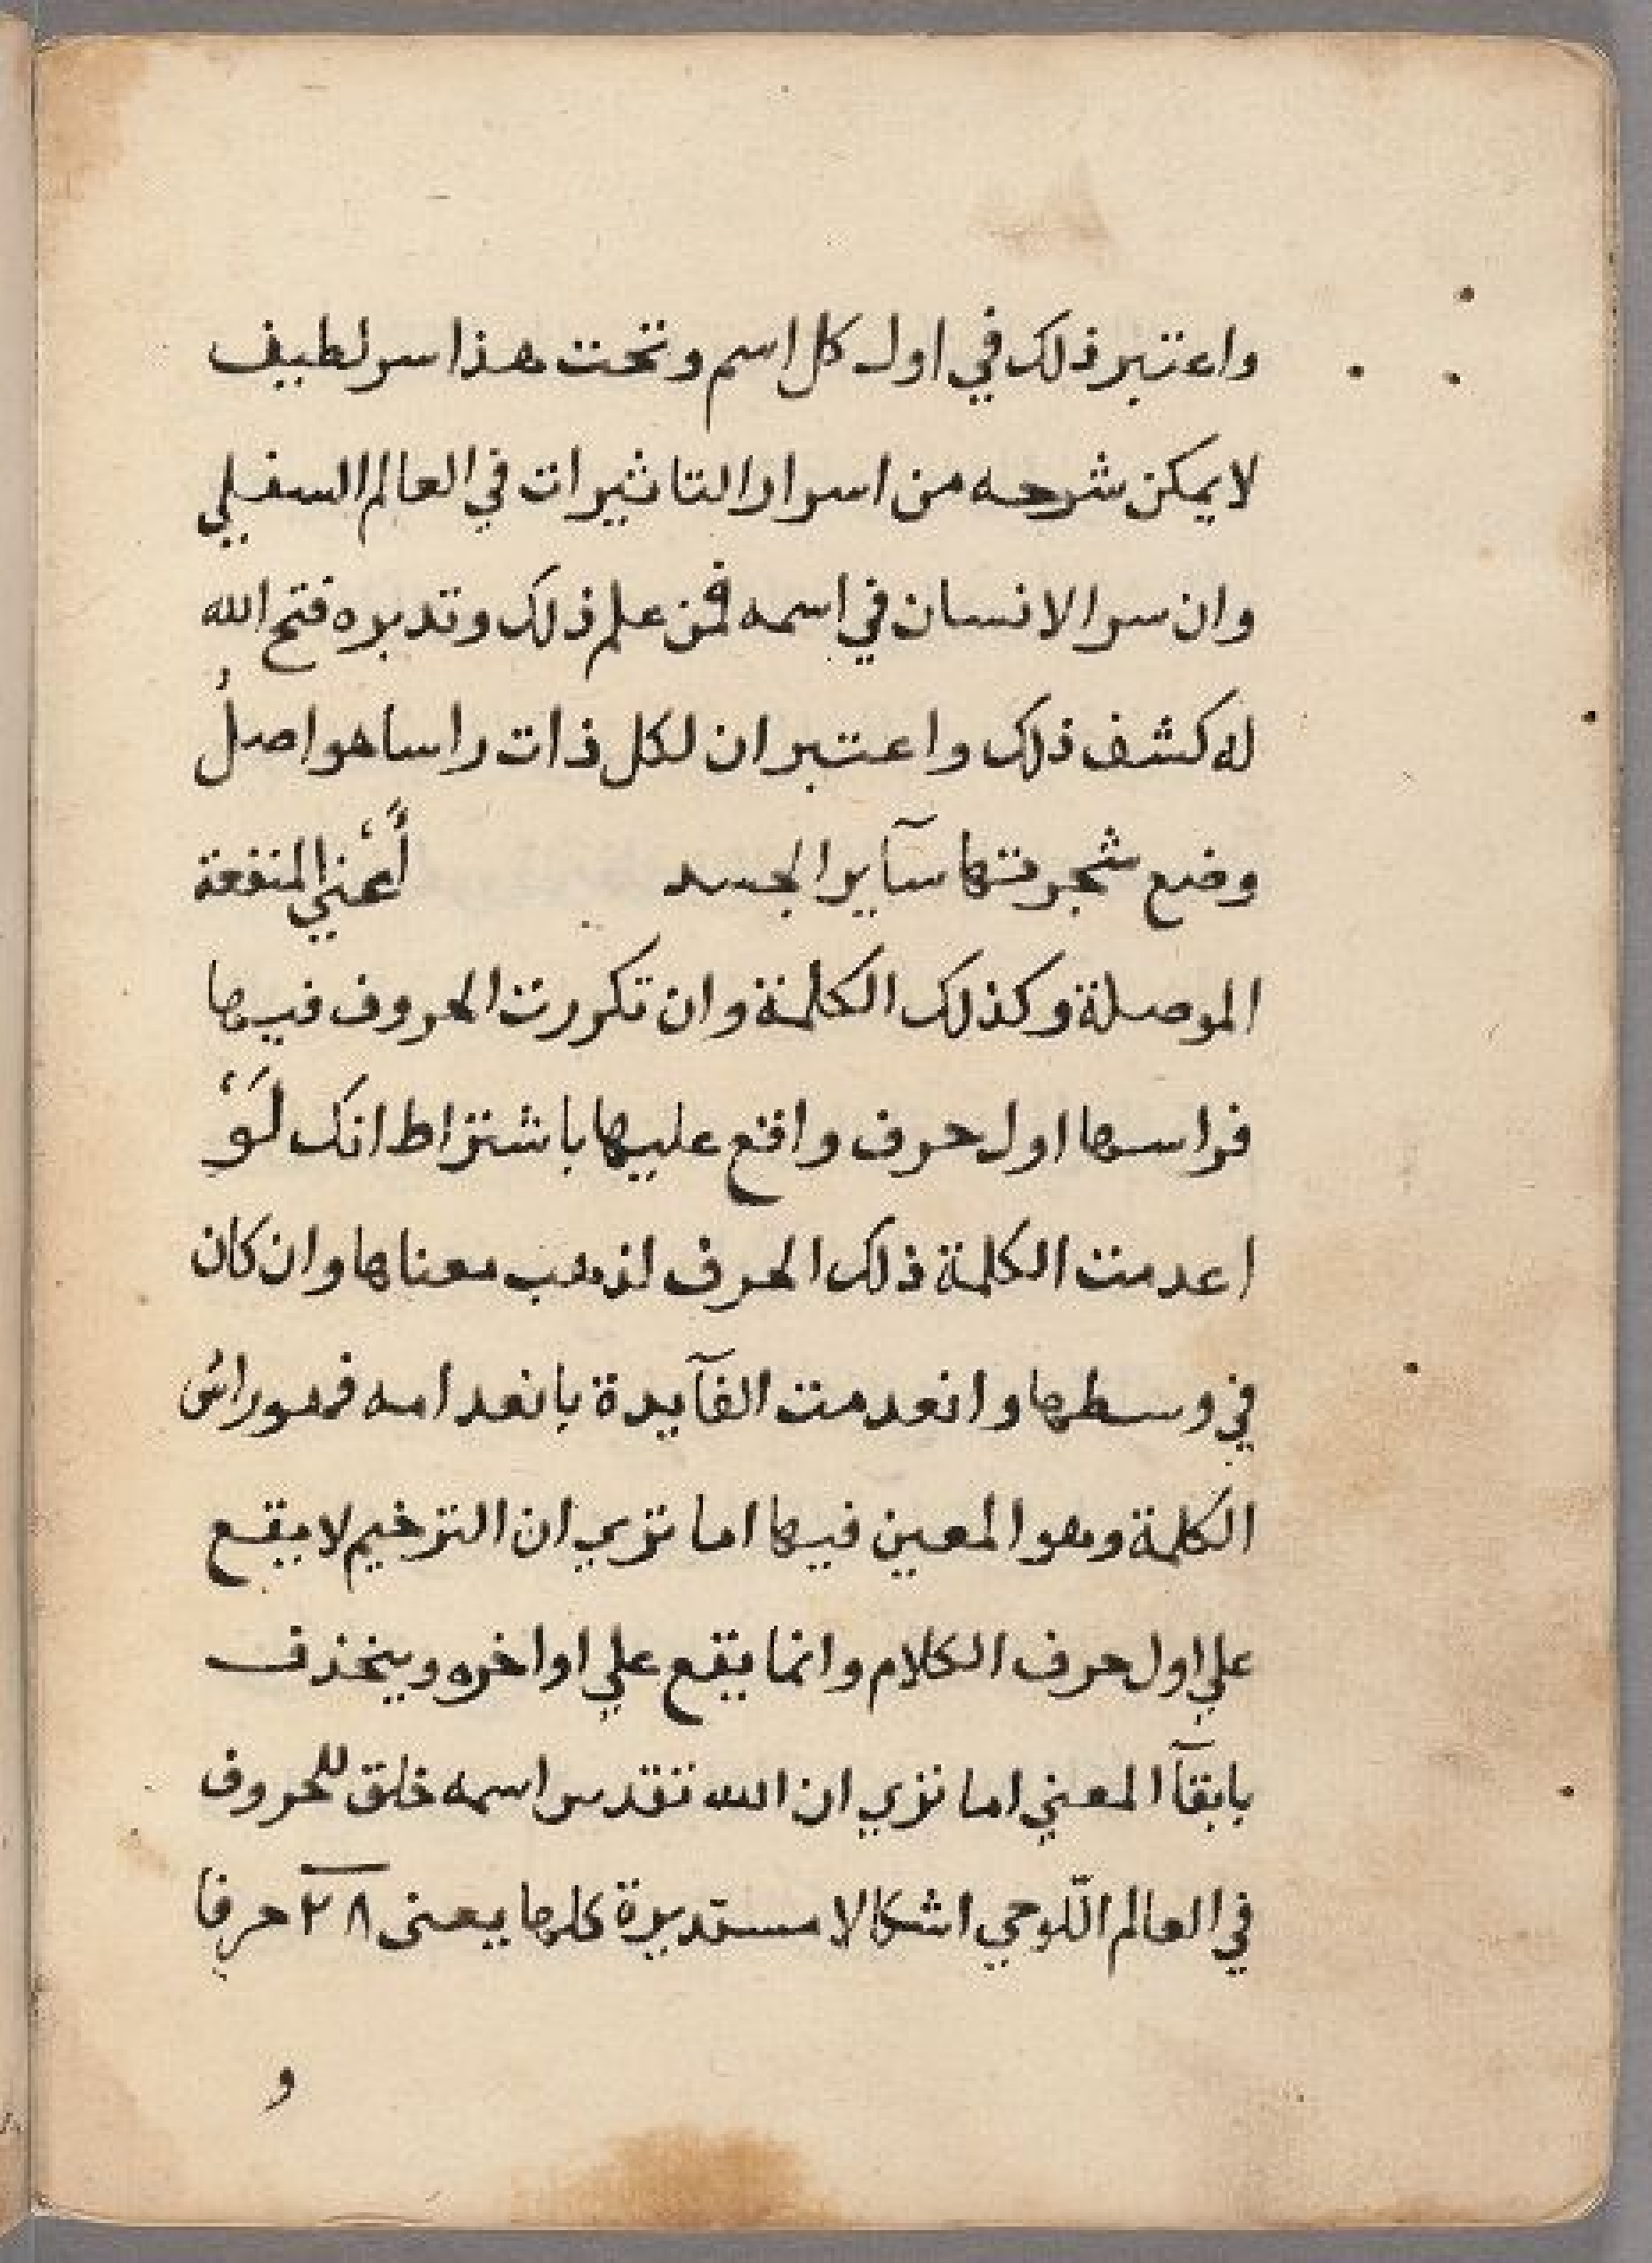 واعتبر ذلك في اول كل اسم وتحت هذا سر لطيف
لا يمكن شرحه من اسرار التاثيرات في العالم السفلي
وان سر الانسان في اسمه فمن علم ذلك وتدبره فتح الله
له كشف ذلك واعتبر ان لكل ذات راسا هو اصلُ
وضع شجرتها سآير الجسد أعْنِي المنفعة
الموصلة وكذلك الكلمة وان تكررت الحروف فيها
فراسها اول حرف واقع عليها باشتراط انك لَوْ
اعدمت الكلمة ذلك الحرف لذهب معناها وان كان
في وسطها وانعدمت الفآيدة بانعدامه فهو راسُ
الكلمة وهو المعين فيها اما تري ان الترخيم لا يقع
علي اول حرف الكلام وانما يقع علي اواخره وينحذف
بابقآ المعني اما تري ان الله تقدس اسمه خلق للحروف
في العالم اللّوحي اشكالا مستديرة كلها يعنى ٢٨ حرفا
و